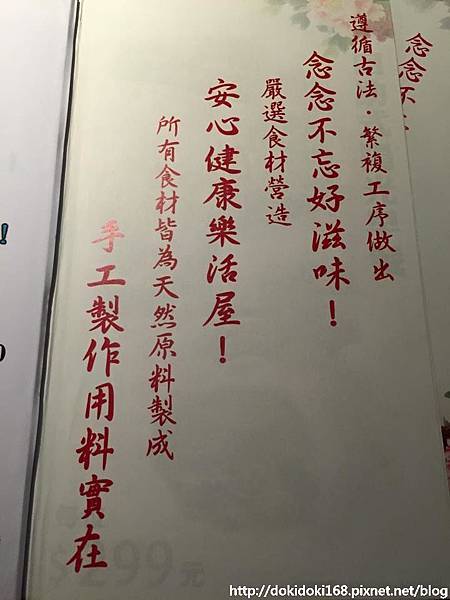 遵循古法·繁複工序做出
念念不忘好滋味！
嚴選食材營造
安心健康樂活屋！
所有食材皆為天然原料製成
手工製作用料實在
念念不
!
99元
http://dokidoki168.pixnet.net/blog